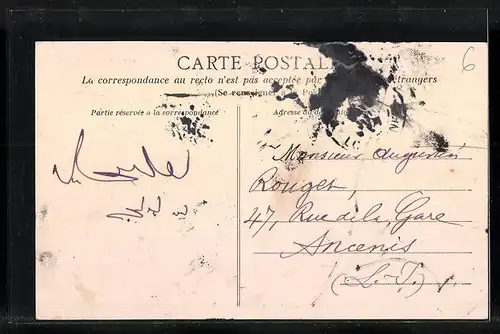 6
CARTE POSTAL
La correspondance au recto n'est pas acceptée par étrangers
(Se renseigner à la Po
Partie réservée à la correspondance
Adresse du de
Monsieur Augustin
Rouget,
47, Rue de la Gare
Ancenis
(L.-I.)